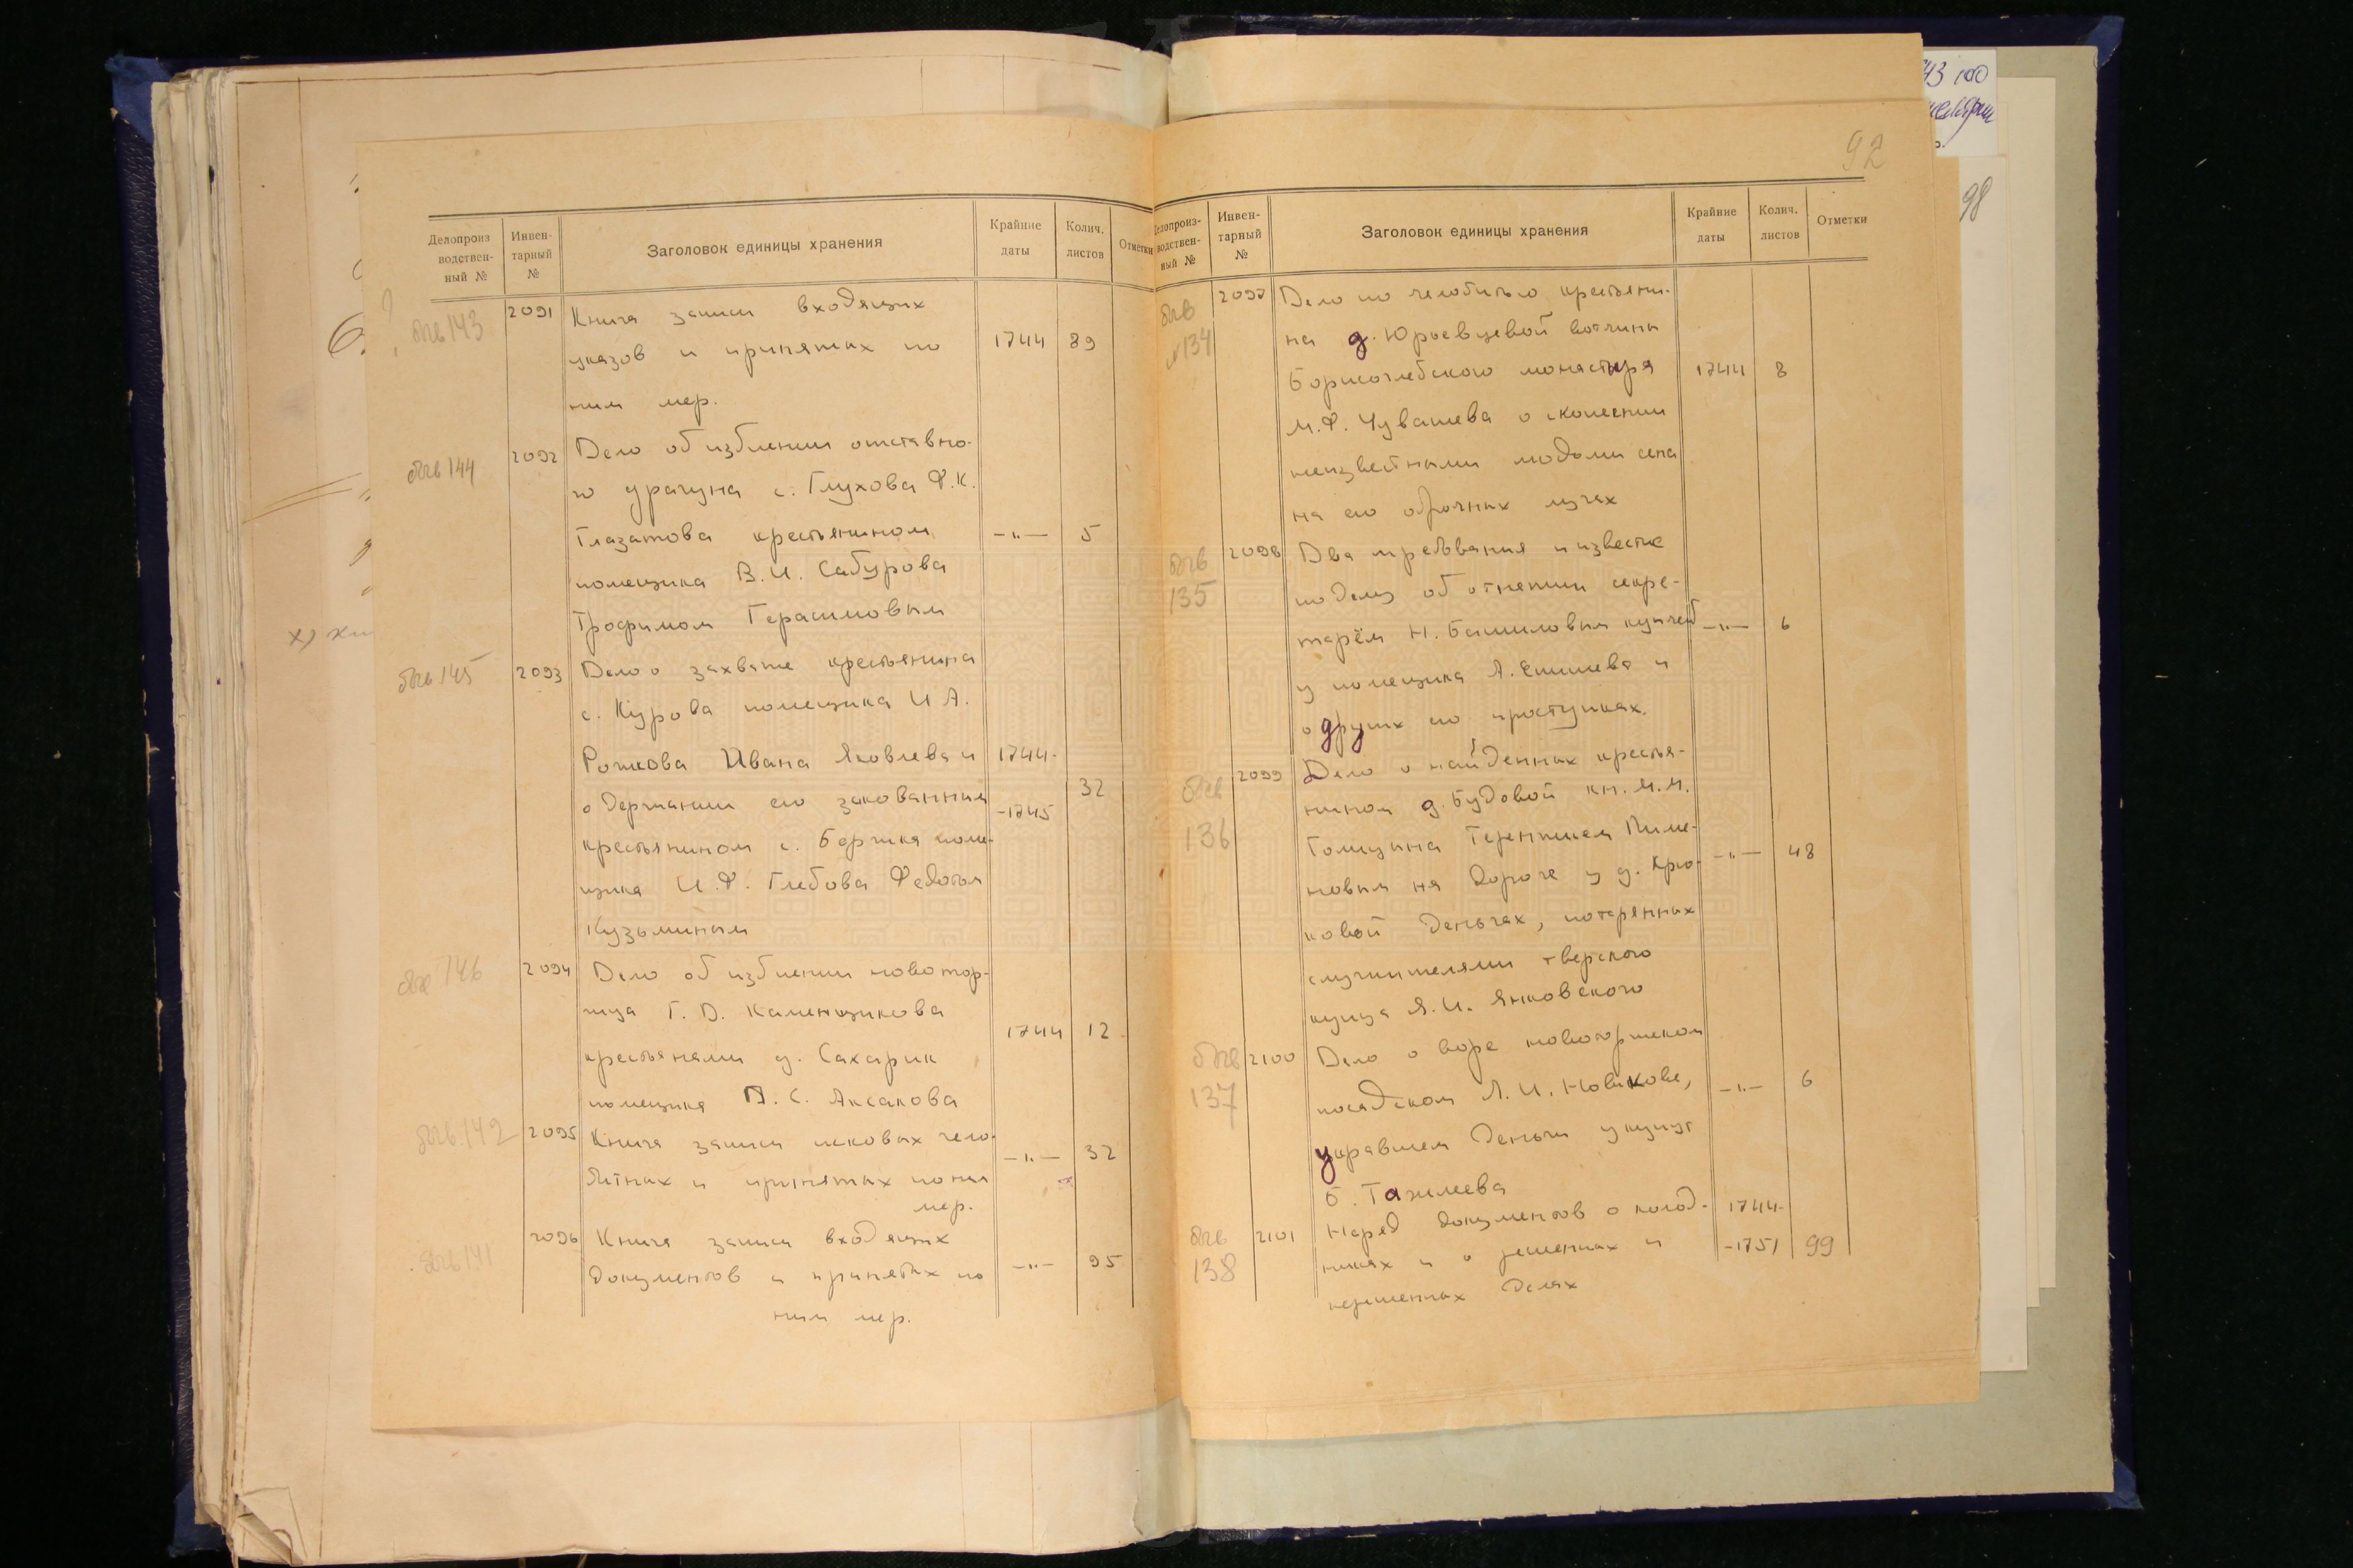 92
98
Делопроиз
водствен-
ный №
Инвен-
тарный
№
Заголовок единицы хранения
Крайние
даты
Колич.
листов
Отметки
143
2091
Книга записи входящих
указов и принятых по
1744
89
ним мер.
144
2092
Дело об избиении отставно-
го драгуна с. Глухова Ф.К.
Глазатова крестьянином
-"-
5
помещика В.И. Сабурова
Трофимом Герасимовым
145
2093
Дело о захвате крестьянина
с. Курова помещика И А.
Рожкова Ивана Яковлева и
1744-
о держании его закованным
-1745
32
крестьянином с. Бержка поме-
щика И.Ф. Глебова Федотом
Кузьминым
146
2094
Дело об избиении новотор-
жца Г. Д. Каменщикова
1744
12
крестьянами д. Сахарик
помещика П. С. Аксакова
142
2095
Книга записи исковых чело-
битных и принятых по ним
-"-
32
мер.
141
2096
Книга записи входящих
документов и принятых по
-"-
95
ним мер.
Делопроиз-
водствен-
ный №
Инвен-
тарный
№
Заголовок единицы хранения
Крайние
даты
Колич.
листов
Отметки
134
2097
Дело по челобитью крестьяни-
на д. Юрьевцевой вотчины
Борисоглебского монастыря
1744
8
М.Ф. Чувашева о скошении
неизвестными людьми сена
на его оброчных лугах
135
2098
Два требования и известие
по делу об отнятии секре-
тарём Н. Башиловым купчей
-"-
6
у помещика А. Епишева и
о других его проступках.
136
2099
Дело о найденных крестья-
нином д. Будовой кн. М.М.
Голицына Терентием Пиме-
новым на дороге у д. Крю-
-"-
48
ковой деньгах, потерянных
служителями тверского
купца Я.И. Янковского
137
2100
Дело о воре новоторжском
посадском Л.И. Новикове,
-"-
6
укравшем деньги у купца
Б. Тажлеева
138
2101
Наряд документов о колод-
1744-
никах и о решенных и
-1751
99
нерешенных делах